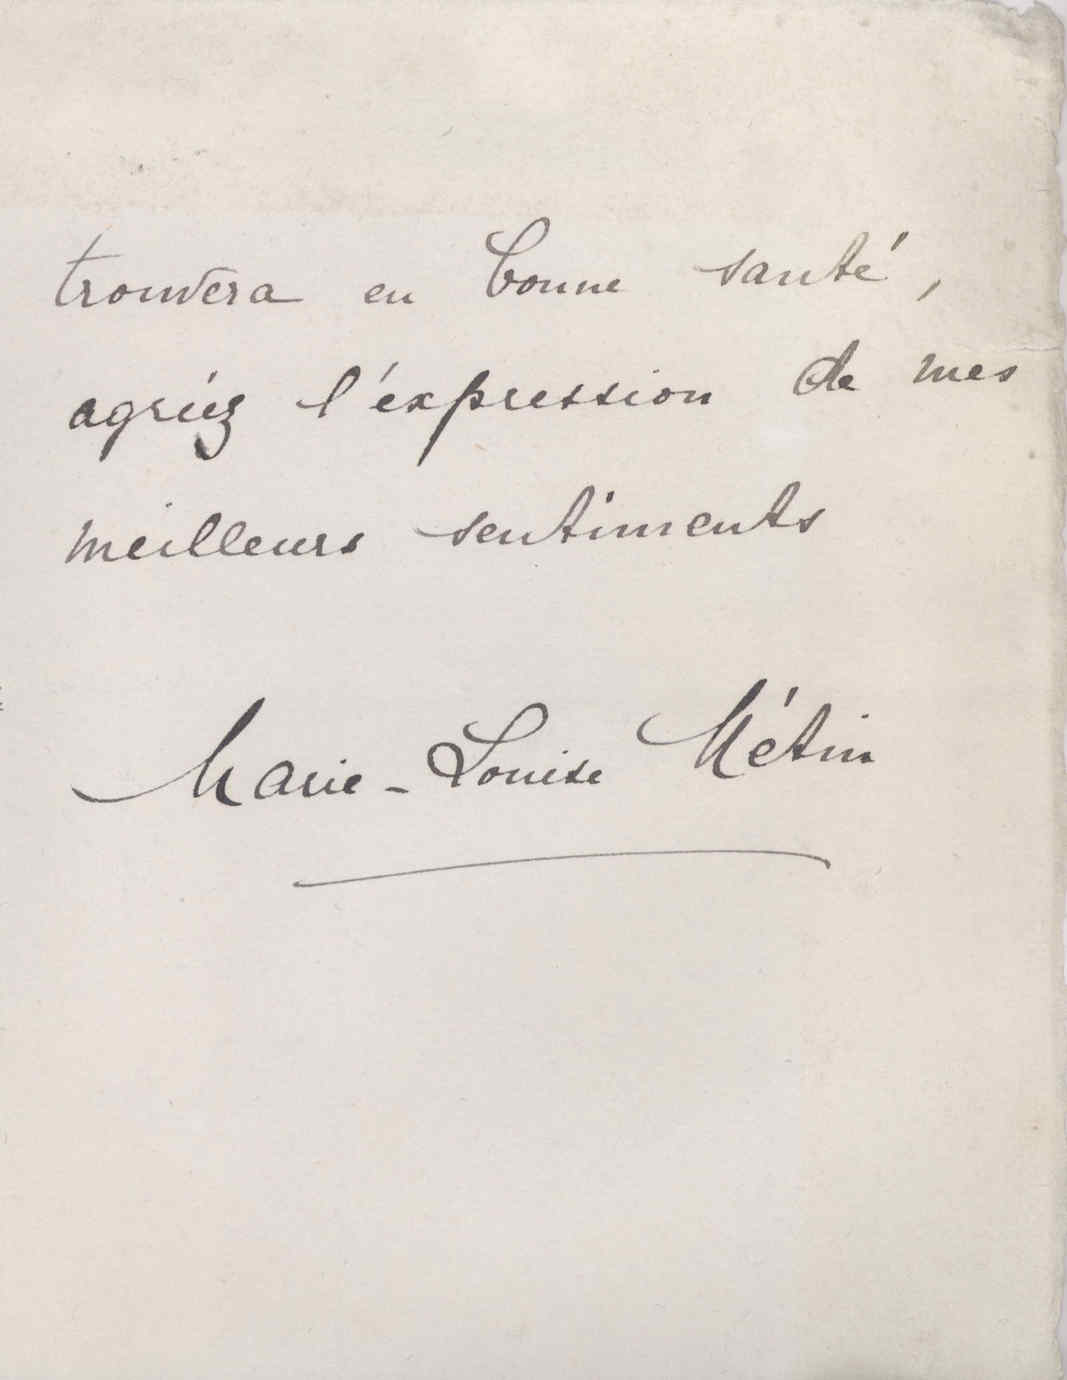 trouvera en bonne santé,
agréez l'expression de mes
meilleurs sentiments
Marie-Louise Métin